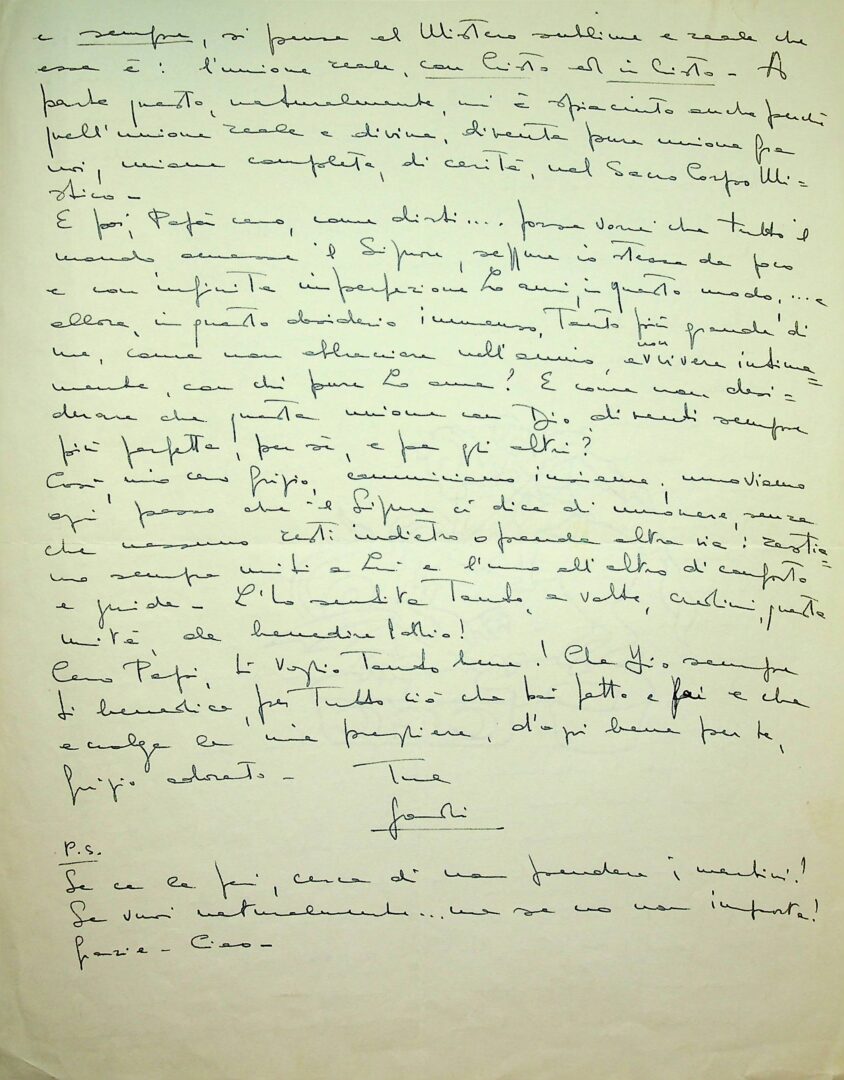 e sempre, si pensa al Mistero sublime e reale che
essa è: l'unione reale, con Cristo ed in Cristo - A
parte questo, naturalmente, mi è spiaciuto anche perchè
quell'unione reale e divina, diventa pure unione fra
noi, unione completa, di carità, nel Sacro Corpo Mi=
stico -
E poi, Papà caro, come dirti.... forse vorrei che tutto il
mondo amasse il Signore, seppure io stessa da poco
e con infinita imperfezione Lo ami, in questo modo, ... e
allora, in questo desiderio immenso, tanto più grande di
me, come non abbracciare nell'animo, e non vivere intima=
mente, con chi pure Lo ama? E come non desi=
derare che questa unione con Dio, diventi sempre
più perfetta, per sè, e per gli altri?
Così, mio caro Grigio, camminiamo insieme, muoviamo
ogni passo che il Signore ci dice di muovere, senza
che nessuno resti indietro o prenda altra via: restia=
mo sempre uniti a Lui e l'uno all'altro di conforto
e guida - L'ho sentita tanto, a volte, credimi, questa
unità, da benedire Iddio!
Caro Papà, ti voglio tanto bene! Che Dio sempre
ti benedica, per tutto ciò che hai fatto e fai e che
accolga le mie preghiere, d'ogni bene per te,
Grigio adorato - Tua
P.S.
Se ce la fai, cerca di non prendere i martini!
Se vuoi naturalmente... ma se no non importa!
Grazie - Ciao -